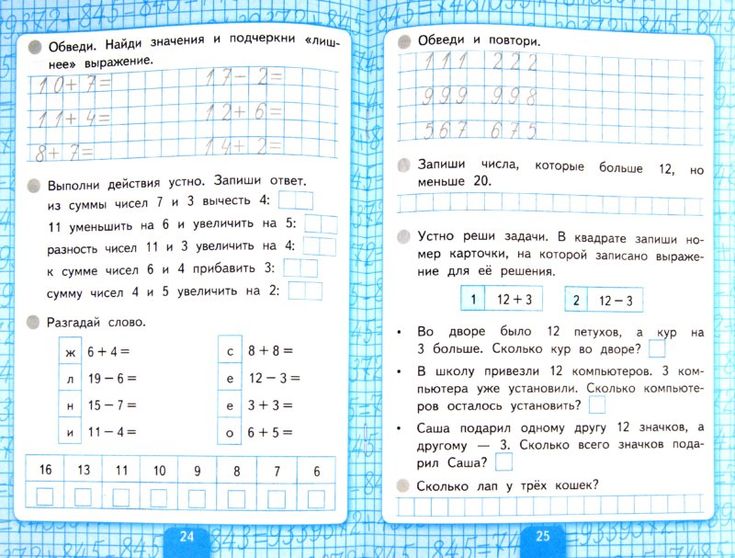 Обведи. Найди значения и подчеркни «лиш-
нее» выражение.
10+7= 17-2=
11+4= 12+6=
8+7= 14+2=
Выполни действия устно. Запиши ответ.
из суммы чисел 7 и 3 вычесть 4:
11 уменьшить на 6 и увеличить на 5:
разность чисел 11 и 3 увеличить на 4:
к сумме чисел 6 и 4 прибавить 3:
сумму чисел 4 и 5 увеличить на 2:
Разгадай слово.
ж 6+4= с 8+8=
л 19−6= е 12−3=
н 15−7= е 3+3=
и 11−4= о 6+5=
16 13 11 10 9 8 7 6
24
Обведи и повтори.
111 222
999 998
567 675
Запиши числа, которые больше 12, но
меньше 20.
Устно реши задачи. В квадрате запиши но-
мер карточки, на которой записано выраже-
ние для её решения.
1 12+3 2 12−3
• Во дворе было 12 петухов, а кур на
3 больше. Сколько кур во дворе?
• В школу привезли 12 компьютеров. 3 ком-
пьютера уже установили. Сколько компьюте-
ров осталось установить?
• Саша подарил одному другу 12 значков, а
другому — 3. Сколько всего значков пода-
рил Саша?
Сколько лап у трёх кошек?
25